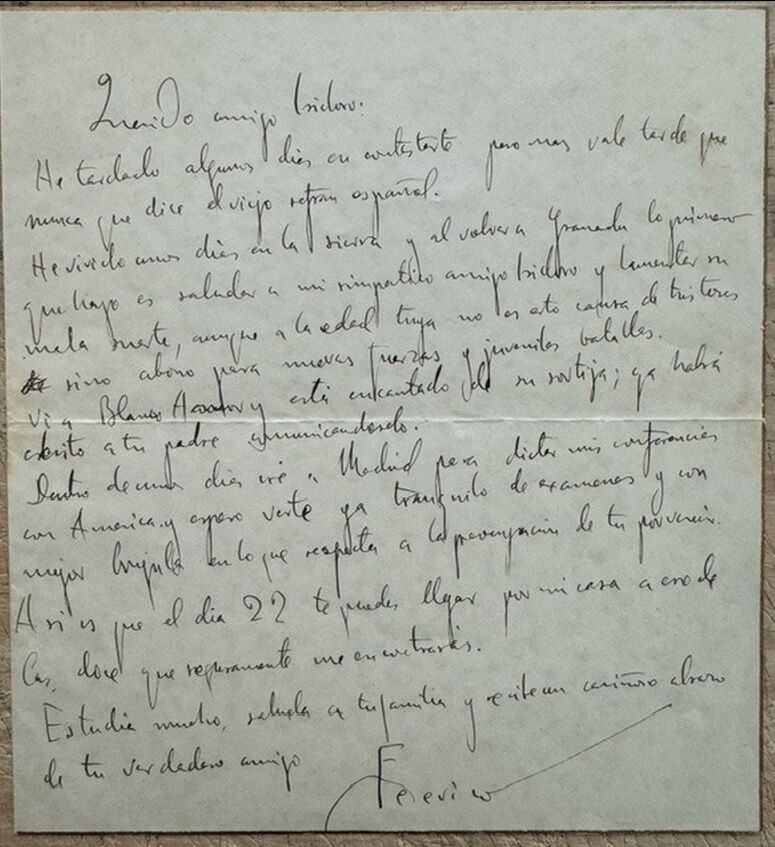 Querido amigo Isidoro:
He tardado algunos dias en contestarte pero mas vale tarde que
nunca que dice el viejo refran español.
He vivido unos dias en la sierra y al volver a Granada lo primero
que hago es saludar a mi simpatico amigo Isidoro y lamentar su
mala suerte, aunque a la edad tuya no es esto causa de tristezas
sino abono para nuevas fuerzas y juveniles batallas.
Vi a Blanco y está encantado de su sortija; ya habrá
escrito a tu padre comunicandoselo.
Dentro de unos dias iré a Madrid para dictar mis conferencias
con America y espero verte ya tranquilo de examenes y con
mejor brujula en lo que respecta a la preocupación de tu porvenir.
Asi es que el dia 22 te puedes llegar por mi casa a eso de
las doce que seguramente me encontrarás.
Estudia mucho, saluda a tu familia y recibe un cariñoso abrazo
de tu verdadero amigo
Federico